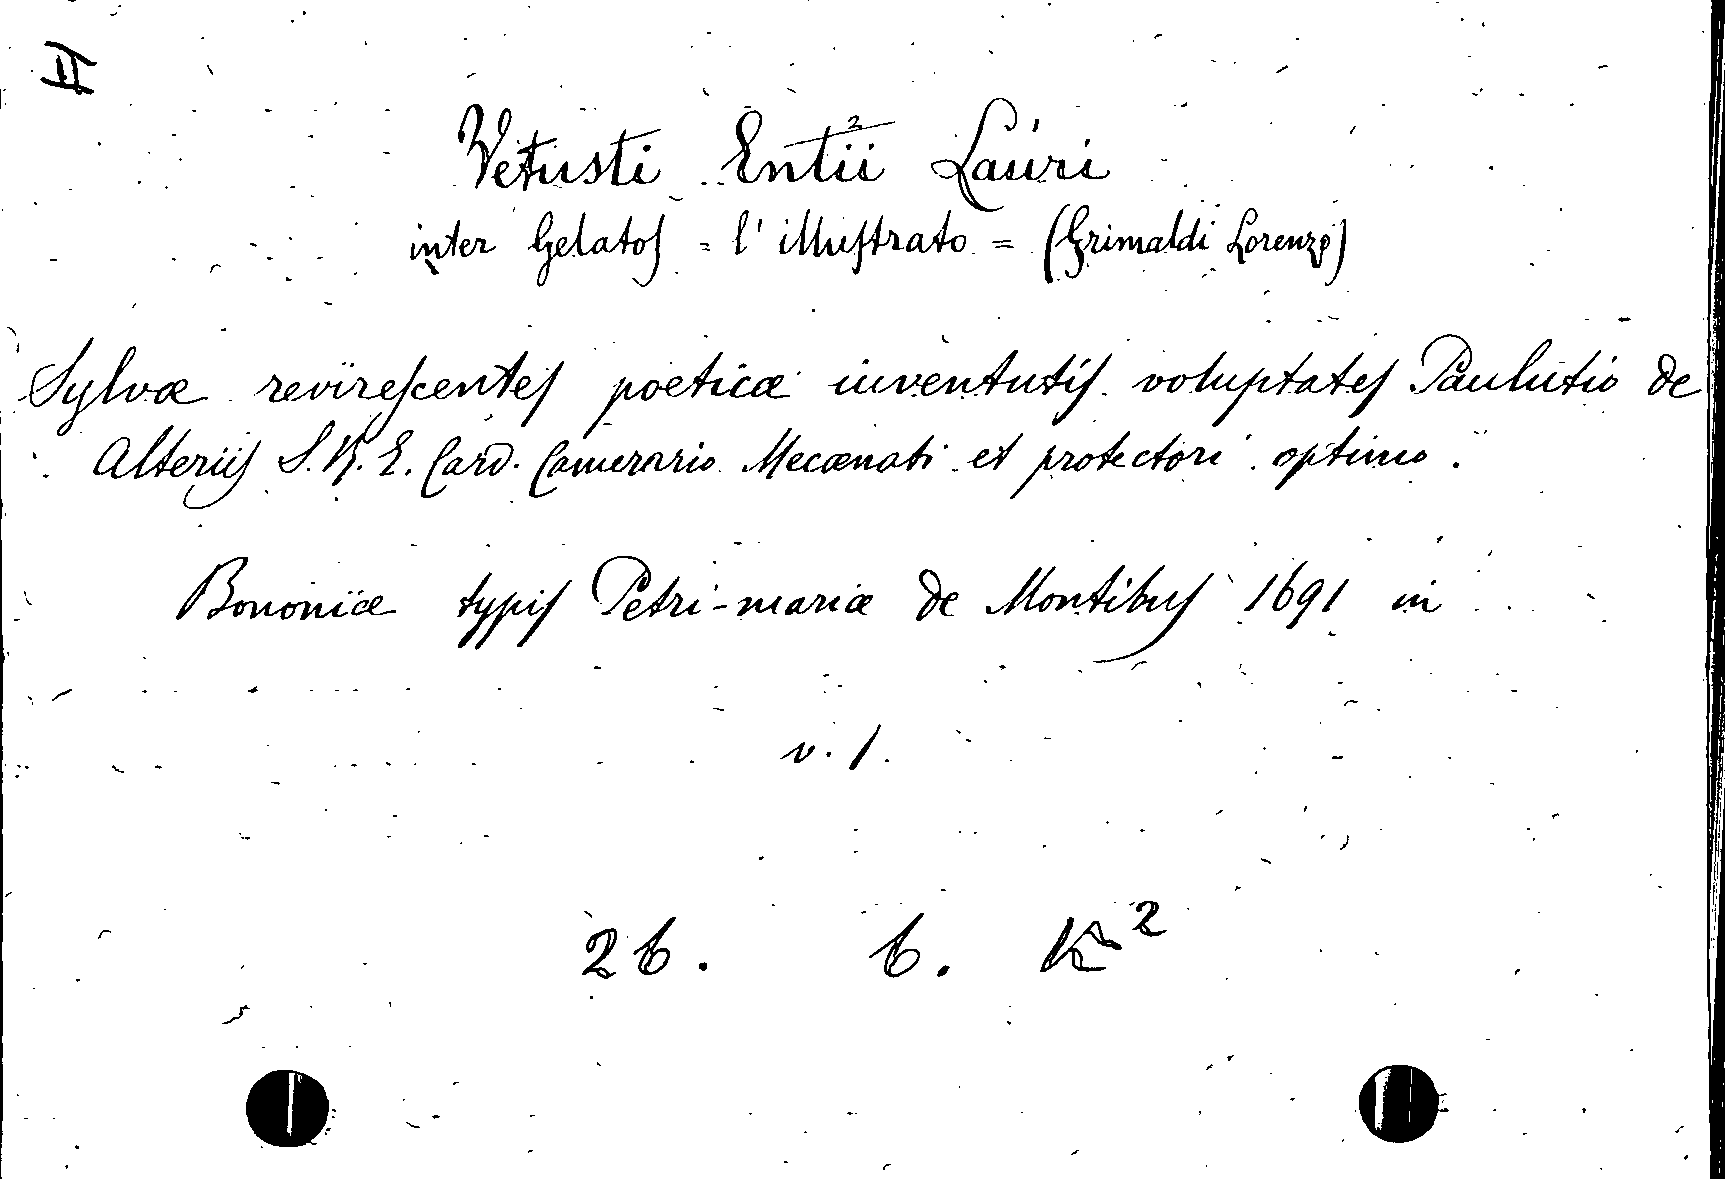 II
Vetusti Entii Lauri
2
inter Gelatos = l' illustrato = (Grimaldi Lorenzo)
Sylvæ revirescentes poeticæ iuventutis voluptates Paulutio de
Alteriis S. R. E. Card. Camerario Mecænati et protectori optimo.
Bononiæ typis Petri-mariæ de Montibus 1691 in
v. 1.
26. 6. K²